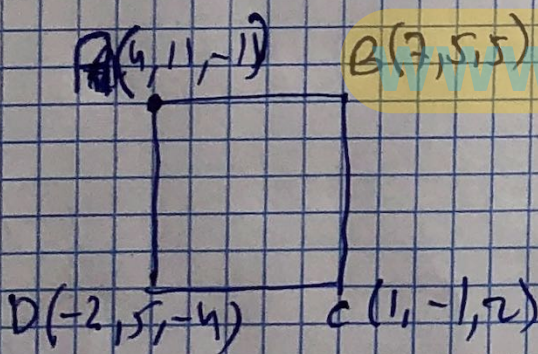 A(4,11,-1) B(7,5,5)
D(-2,5,-4) C(1,-1,2)